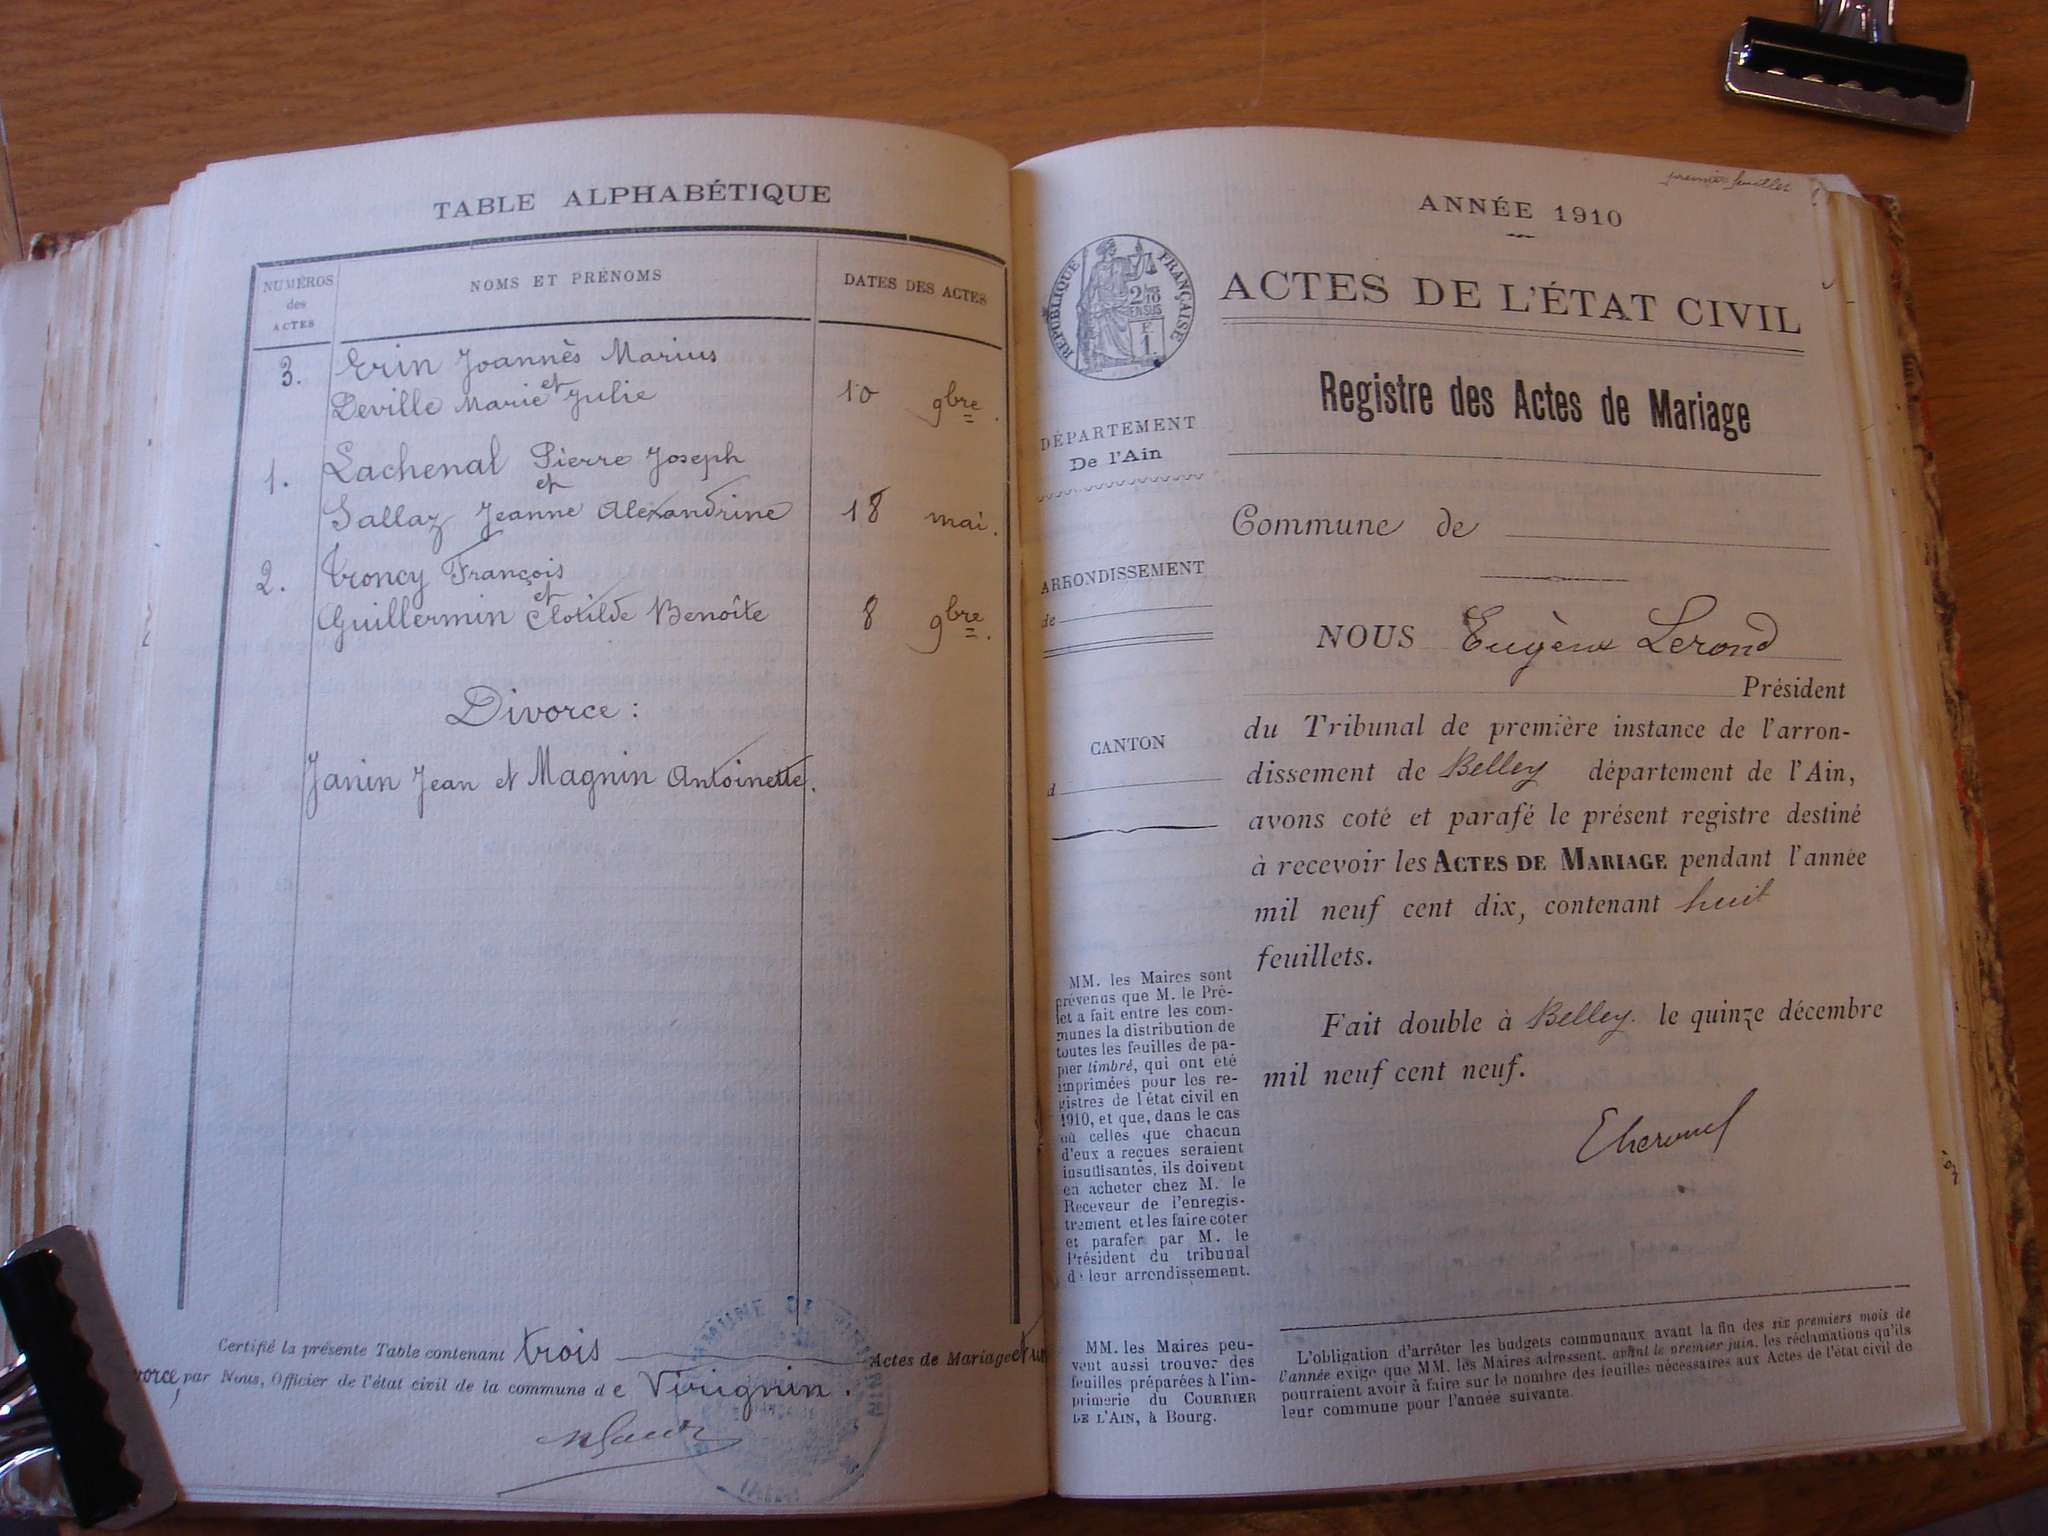 TABLE ALPHABÉTIQUE
NUMÉROS des ACTES
NOMS ET PRÉNOMS
DATES DES ACTES
3. Erin Joannès Marius
et
Deville Marie Julie 10 9bre.
1. Lachenal Pierre Joseph
et
Sallaz Jeanne Alexandrine 18 mai.
2. Troncy François
et
Guillermin Clotilde Benoîte 8 9bre.
Divorce :
Janin Jean et Magnin Antoinette.
Certifié la présente Table contenant trois Actes de Mariage et un
vorce, par Nous, Officier de l'état civil de la commune de Virignin.
premier feuillet
ANNÉE 1910
RÉPUBLIQUE FRANÇAISE
2/10
EN SUS
F.
1.
ACTES DE L'ÉTAT CIVIL
Registre des Actes de Mariage
DÉPARTEMENT
De l'Ain
Commune de
ARRONDISSEMENT
de
CANTON
d
NOUS Eugène Lerond
Président
du Tribunal de première instance de l'arron-
dissement de Belley département de l'Ain,
avons coté et parafé le présent registre destiné
à recevoir les ACTES DE MARIAGE pendant l'année
mil neuf cent dix, contenant huit
feuillets.
Fait double à Belley le quinze décembre
mil neuf cent neuf.
MM. les Maires sont
prévenus que M. le Pré-
fet a fait entre les com-
munes la distribution de
toutes les feuilles de pa-
pier timbré, qui ont été
imprimées pour les re-
gistres de l'état civil en
1910, et que, dans le cas
où celles que chacun
d'eux a reçues seraient
insuffisantes, ils doivent
en acheter chez M. le
Receveur de l'enregis-
trement et les faire coter
et parafer par M. le
Président du tribunal
de leur arrondissement.
MM. les Maires peu-
vent aussi trouver des
feuilles préparées à l'im-
primerie du COURRIER
DE L'AIN, à Bourg.
L'obligation d'arrêter les budgets communaux avant la fin des six premiers mois de
l'année exige que MM. les Maires adressent, avant le premier juin, les réclamations qu'ils
pourraient avoir à faire sur le nombre des feuilles nécessaires aux Actes de l'état civil de
leur commune pour l'année suivante.